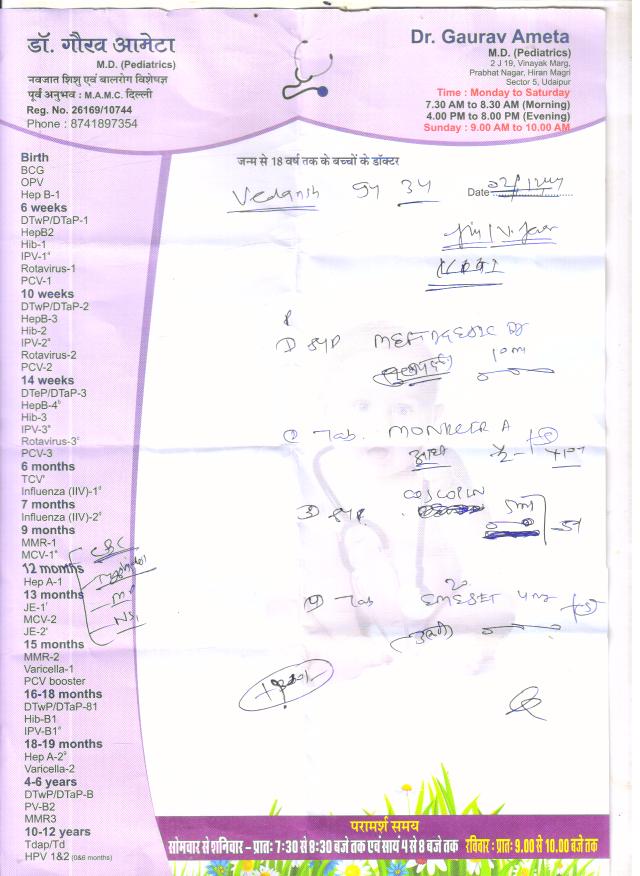 डॉ. गौरव आमेटा
M.D. (Pediatrics)
नवजात शिशु एवं बालरोग विशेषज्ञ
पूर्व अनुभव : M.A.M.C. दिल्ली
Reg. No. 26169/10744
Phone : 8741897354
Dr. Gaurav Ameta
M.D. (Pediatrics)
2 J 19, Vinayak Marg,
Prabhat Nagar, Hiran Magri
Sector 5, Udaipur
Time : Monday to Saturday
7.30 AM to 8.30 AM (Morning)
4.00 PM to 8.00 PM (Evening)
Sunday : 9.00 AM to 10.00 AM
जन्म से 18 वर्ष तक के बच्चों के डॉक्टर
Vedansh
Date
Birth
BCG
OPV
Hep B-1
6 weeks
DTwP/DTaP-1
HepB2
Hib-1
IPV-1ª
Rotavirus-1
PCV-1
10 weeks
DTwP/DTaP-2
HepB-3
Hib-2
IPV-2ª
Rotavirus-2
PCV-2
14 weeks
DTeP/DTaP-3
HepB-4ᵇ
Hib-3
IPV-3ª
Rotavirus-3ᶜ
PCV-3
6 months
TCV
Influenza (IIV)-1
7 months
Influenza (IIV)-2
9 months
MMR-1
MCV-1
12 months
Hep A-1
13 months
JE-1
MCV-2
JE-2
15 months
MMR-2
Varicella-1
PCV booster
16-18 months
DTwP/DTaP-81
Hib-B1
IPV-B1ª
18-19 months
Hep A-2
Varicella-2
4-6 years
DTwP/DTaP-B
PV-B2
MMR3
10-12 years
Tdap/Td
HPV 1&2 (0&6 months)
CBC
① SYP MEFTAGESIC DS
10ml
② Tab. MONKCER A
③ SYP. COSCOPIN 5ml
④ Tab EMESET
परामर्श समय
सोमवार से शनिवार – प्रातः 7:30 से 8:30 बजे तक एवं सायं 4 से 8 बजे तक रविवार : प्रातः 9.00 से 10.00 बजे तक